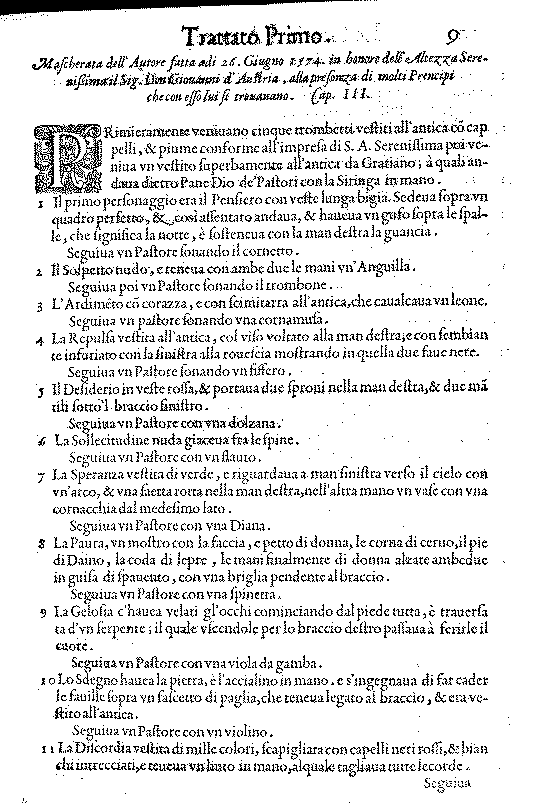 Trattato Primo. 9
Mascherata dell'Autore fatta adi 26. Giugno 1574. in honore dell'Altezza Sere-
nissima il Sig. Don Giouanni d'Austria, alla presenza di molti Principi
che con esso lui si trouauano. Cap. III.
PRimieramente veniuano cinque trombetti vestiti all'antica cō cap
pelli, & piume conforme all'impresa di S. A. Serenissima poi ve-
niua vn vestito superbamente all'antica da Gratiano; à quali an-
daua dietro Pane Dio de'Pastori con la Siringa in mano.
1 Il primo personaggio era il Pensiero con veste lunga bigia. Sedeua sopra vn
quadro perfetto, & così assentato andaua, & haueua vn gufo sopra le spal-
le, che significa la notte, e sosteneua con la man destra la guancia.
Seguiua vn Pastore sonando il cornetto.
2 Il Sospetto nudo, e teneua con ambe due le mani vn'Anguilla.
Seguiua poi vn Pastore sonando il trombone.
3 L'Ardimēto cō corazza, e con scimitarra all'antica, che caualcaua vn leone.
Seguiua vn pastore sonando vna cornamusa.
4 La Repulsa vestita all'antica, col viso voltato alla man destra, e con sembian
te infuriato con la sinistra alla rouescia mostrando in quella due faue nere.
Seguiua vn Pastore sonando vn fiffero.
5 Il Desiderio in veste rossa, & portaua due sproni nella man destra, & due mā
tili sotto'l braccio sinistro.
Seguiua vn Pastore con vna dolzana.
6 La Sollecitudine nuda giaceua fra le spine.
Seguiua vn Pastore con vn flauto.
7 La Speranza vestita di verde, e riguardaua a man sinistra verso il cielo con
vn'arco, & vna saetta rotta nella man destra, nell'altra mano vn vase con vna
cornacchia dal medesimo lato.
Seguiua vn Pastore con vna Diana.
8 La Paura, vn mostro con la faccia, e petto di donna, le corna di ceruo, il pie
di Daino, la coda di lepre, le mani finalmente di donna alzate ambedue
in guisa di spauento, con vna briglia pendente al braccio.
Seguiua vn Pastore con vna spinetta.
9 La Gelosia c'hauea velati gl'occhi cominciando dal piede tutta, è trauersa
ta d'vn serpente; il quale vscendole per lo braccio destro passaua à ferirle il
cuore.
Seguiua vn Pastore con vna viola da gamba.
10 Lo Sdegno hauea la pietra, è l'accialino in mano. e s'ingegnaua di far cader
le fauille sopra vn fascetto di paglia, che teneua legato al braccio, & era ve-
stito all'antica.
Seguiua vn Pastore con vn violino.
11 La Discordia vestita di mille colori, scapigliata con capelli neri rossi, & bian
chi intrecciati, e teneua vn liuto in mano, al quale tagliaua tutte le corde.
Seguiua